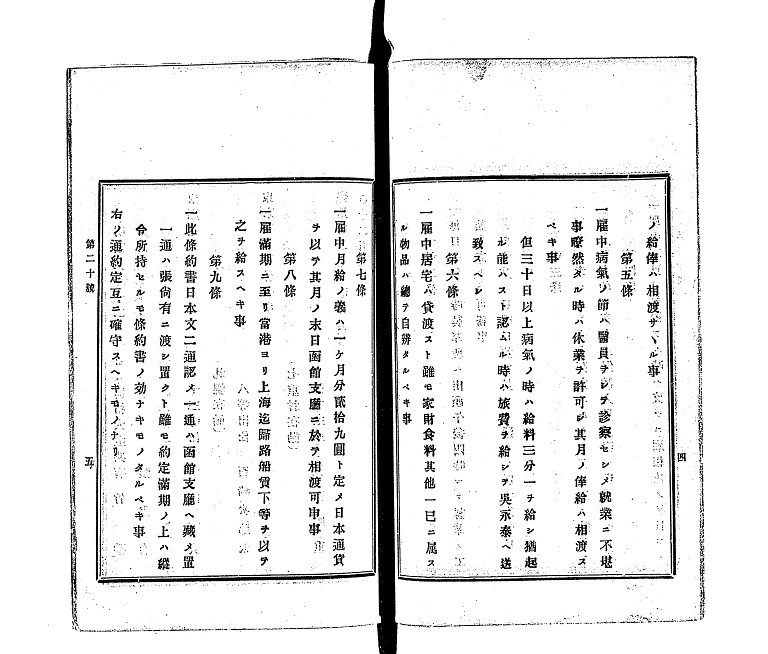 ノ給俸ハ相渡サヽル事
第五條
一雇中病氣ノ節ハ醫員ヲシテ診察セシメ就業ニ不堪
事瞭然タル時ハ休業ヲ許可シ其月ノ俸給ハ相渡ス
ベキ事
但三十日以上病氣ノ時ハ給料三分一ヲ給シ猶起
ル能ハスト認ムル時ハ旅費ヲ給シテ吳永泰ヘ送
致スベシ
第六條
一雇中居宅ハ貸渡スト雖モ家財食料其他一己ニ属ス
ル物品ハ總テ自辨タルベキ事
四
第七條
一雇中月給ノ義ハ一ケ月分貳拾九圓ト定メ日本通貨
ヲ以テ其月ノ末日函館支廳ニ於テ相渡可申事
第八條
一雇滿期ニ至リ當港ヨリ上海迄歸路船賃下等ヲ以テ
之ヲ給スヘキ事
第九條
一此條約書日本文二通認メ一通ハ函館支廳ヘ殘メ置
一通ハ張尙有ニ渡シ置クト雖モ約定滿期ノ上ハ縱
令所持セルモ條約書ノ効ナキモノタルベキ事
右ノ通約定互ニ確守スヘキモノナリ
第二十號
五